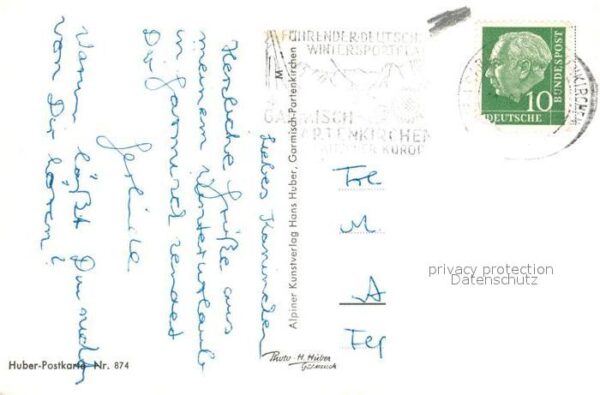 Liebes Kaninchen
Herzliche Grüße aus
meinem Winterurlaub
in Garmisch sendet
Dir
Gerlinde
Warum läßt Du nichts
von Dir hören?
FÜHRENDER DEUTSCHER
WINTERSPORTPLATZ
GARMISCH
PARTENKIRCHEN
KUROR
10
DEUTSCHE
BUNDESPOST
KIRCHEN
M
Alpiner Kunstverlag Hans Huber, Garmisch-Partenkirchen
Frl
M
A
Huber-Postkarte Nr. 874
Photo H. Huber
Garmisch
privacy protection
Datenschutz